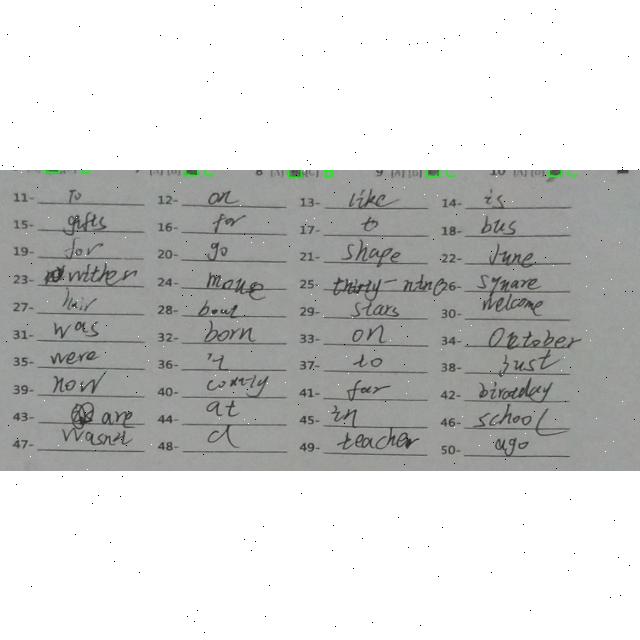 11- To 12- on 13- like 14- is
15- gifts 16- for 17- to 18- bus
19- for 20- go 21- shape 22- June
23- wither 24- moue 25 thirty-nine 26- synare
27- hair 28- bout 29- stars 30- welcome
31- was 32- born 33- on 34- October
35- were 36- 37- to 38- just
39- now 40- 41- far 42-
43- are 44- at 45- in 46- school
47- wasn't 48- d 49- teacher 50- ago